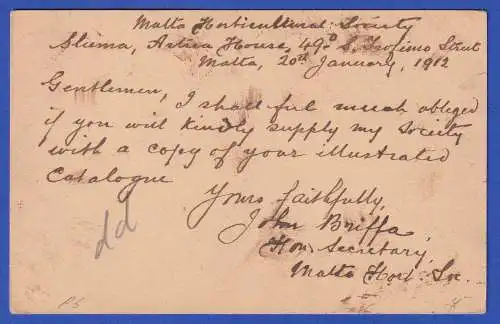 Malta Horticultural Society
Sliema, House, 49, S. Trofimo Street
Malta, 20th January, 1912
Gentlemen,
I shall feel much obliged
if you will kindly supply my Society
with a copy of your illustrated
Catalogue
Yours faithfully,
John Briffa,
Hon. Secretary,
Malta Hort. Soc.
dd